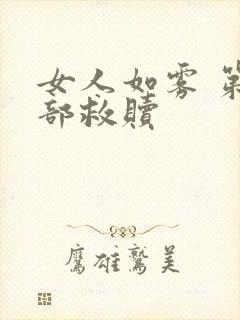 女人如雾 第
部救赎
鹰雄鹫美